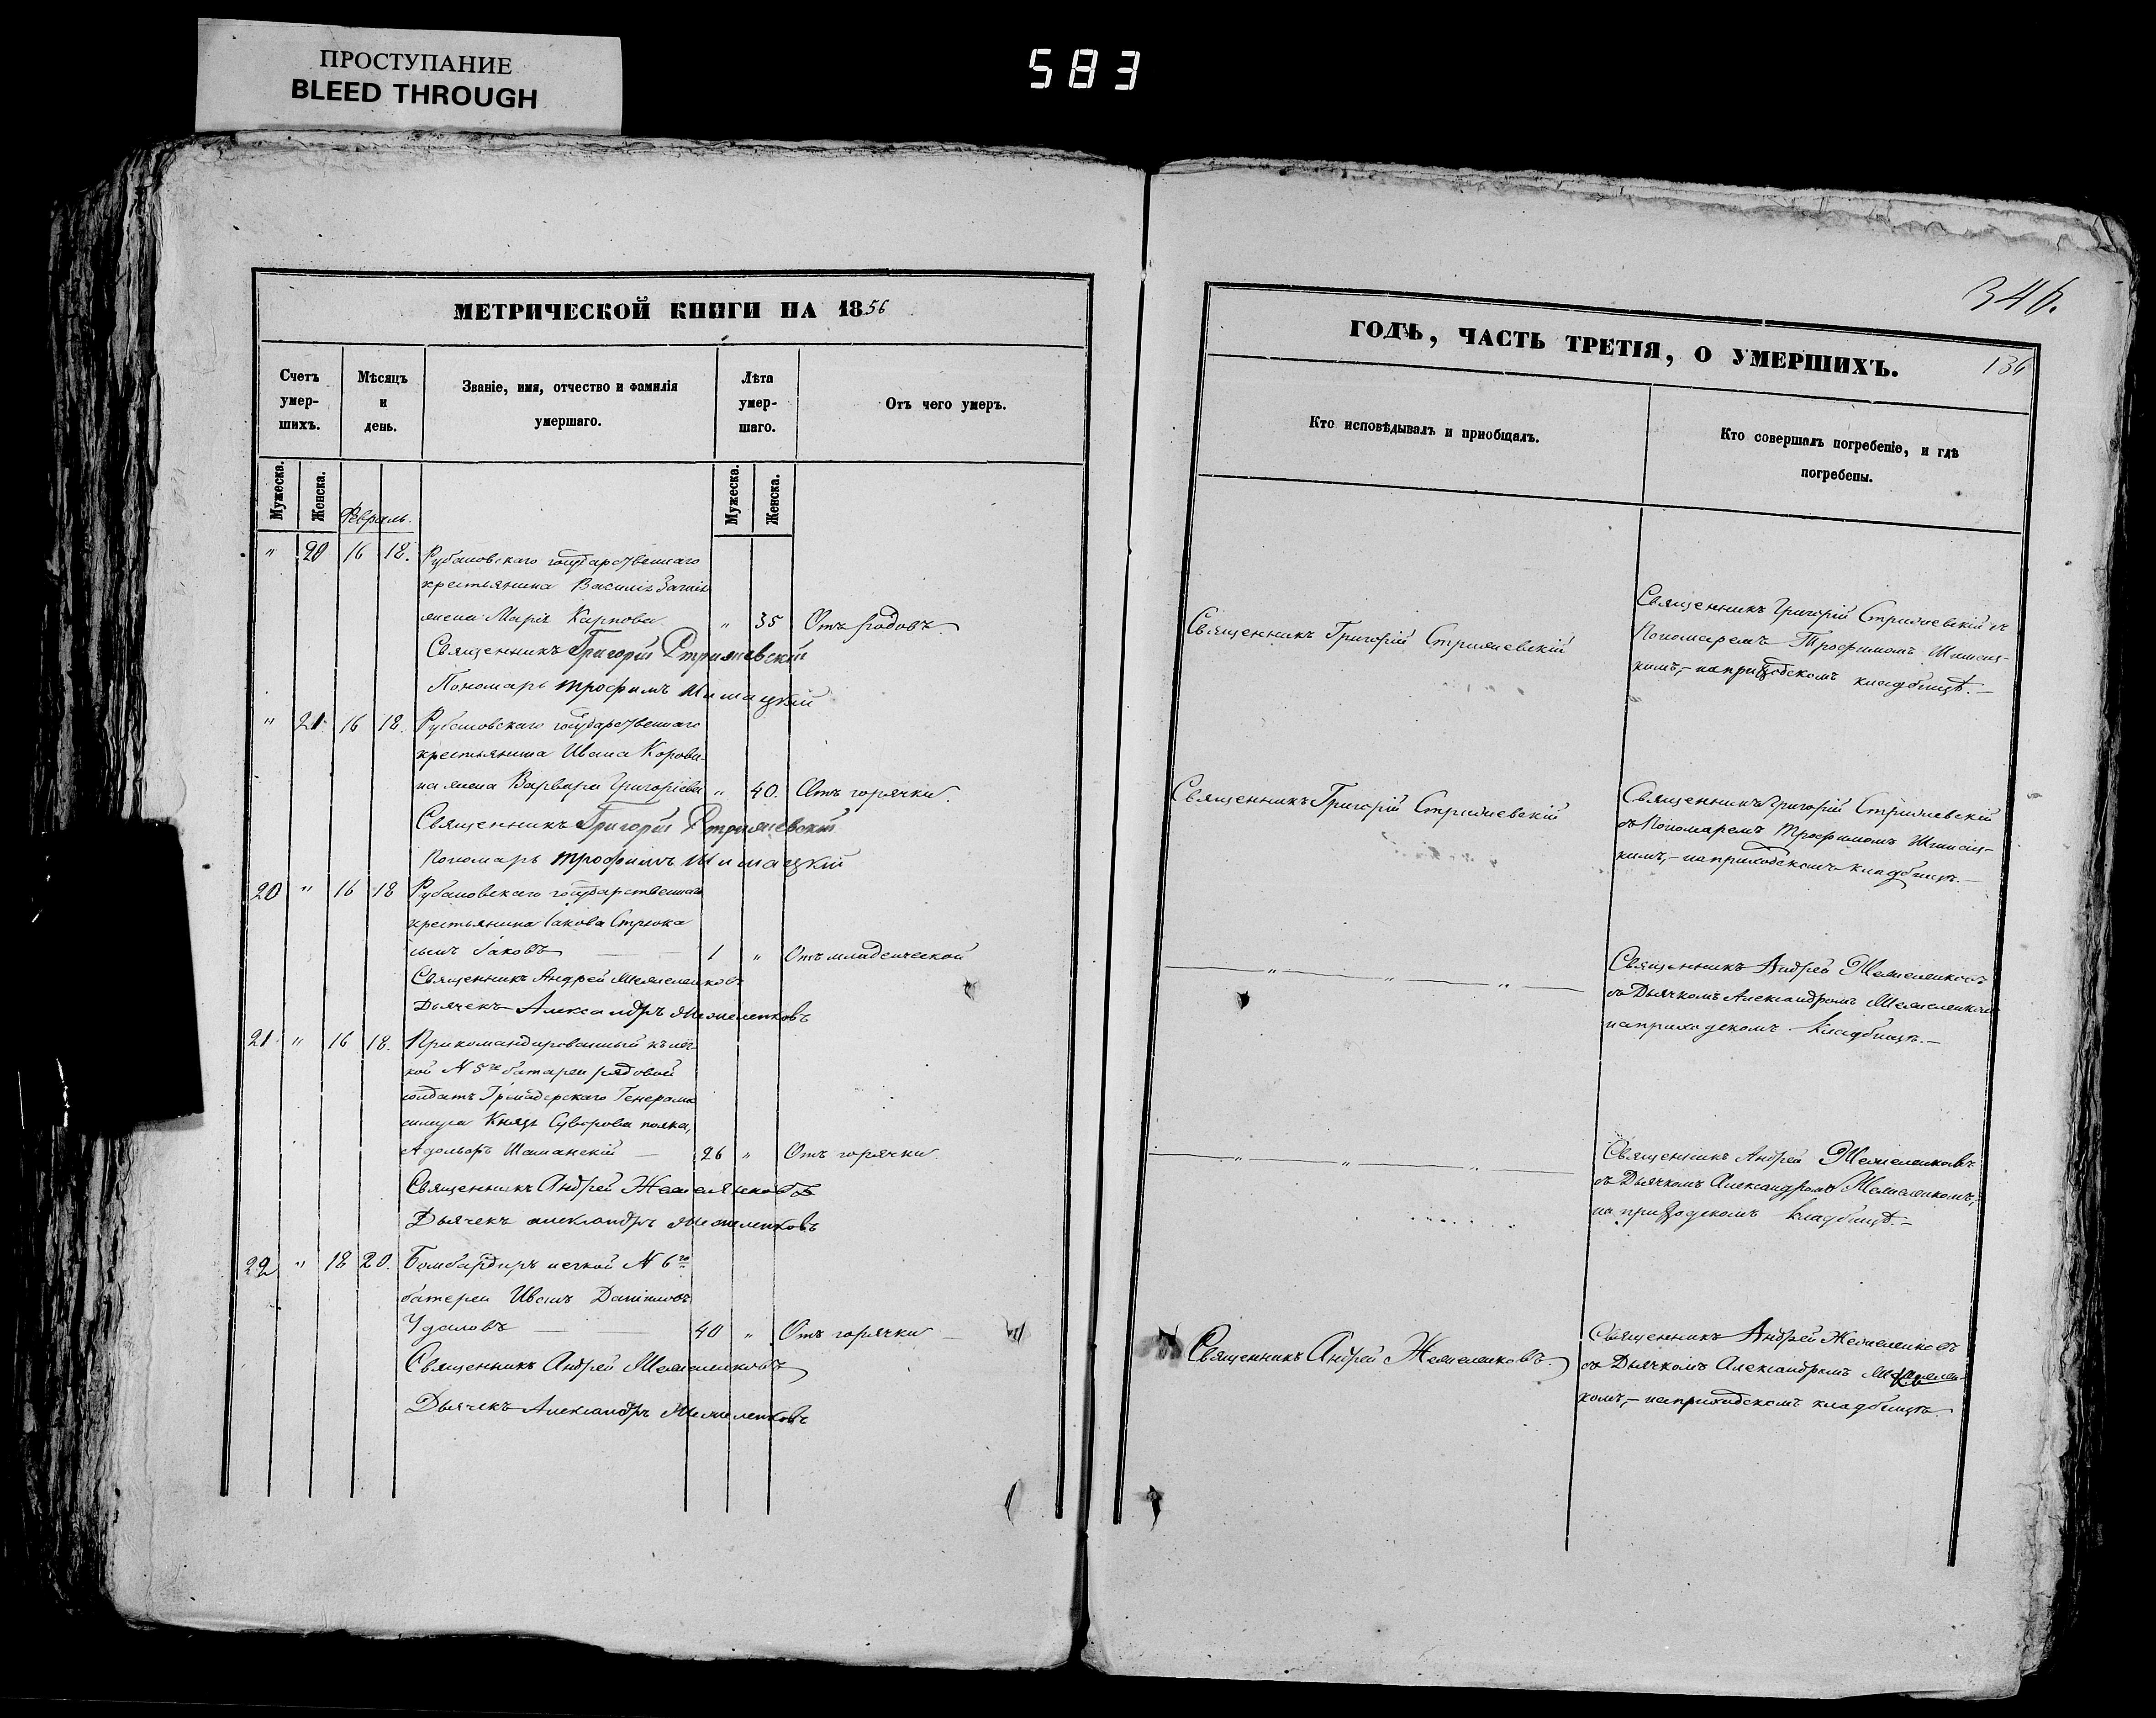 ПРОСТУПАНИЕ
BLEED THROUGH
583
МЕТРИЧЕСКОЙ КНИГИ НА 1856
Счетъ умер-шихъ.
Мѣсяцъ и день.
Званіе, имя, отчество и фамилія умершаго.
Лѣта умер-шаго.
Отъ чего умеръ.
Мужеска.
Женска.
Февраль.
Мужеска.
Женска.
" 20 16 18. Рубановскаго государственнаго
крестьянина Василія
жена Марія Карпова " 35 Отъ родовъ.
Священникъ Григорій Стрижевскій
Пономарь Трофимъ Шишацкій
" 21. 16 18. Рубановскаго государственнаго
крестьянина Ивана Корови-
на жена Варвара Григоріева " 40. Отъ горячки.
Священникъ Григорій Стрижевскій
Пономарь Трофимъ Шишацкій
20 " 16 18 Рубановскаго государственнаго
крестьянина Іакова Стрюка
сынъ Іаковъ 1 " Отъ младенческой
Священникъ Андрей Жемеленковъ
Дьячекъ Александръ Жемеленковъ
21. " 16 18. Прикомандированный къ лег-
кой N 5й батареи рядовой
солдатъ Гренадерскаго Генерали-
симуса Князя Суворова полка,
Адольфъ Шаманскій 26 " Отъ горячки.
Священникъ Андрей Жемеленковъ
Дьячекъ Александръ Жемеленковъ
22 " 18 20. Бомбардиръ легкой N 6й
батареи Иванъ Даниловъ
Удаловъ 40 " Отъ горячки
Священникъ Андрей Жемеленковъ
Дьячекъ Александръ Жемеленковъ
346.
ГОДЪ, ЧАСТЬ ТРЕТІЯ, О УМЕРШИХЪ.
136
Кто исповѣдывалъ и приобщалъ.
Кто совершалъ погребеніе, и гдѣ погребены.
Священникъ Григорій Стрижевскій
Священникъ Григорій Стрижевскій съ
Пономаремъ Трофимомъ Шишац-
кимъ,- на приходскомъ кладбищѣ.-
Священникъ Григорій Стрижевскій
Священникъ Григорій Стрижевскій
съ Пономаремъ Трофимомъ Шишац-
кимъ,- на приходскомъ кладбищѣ.-
Священникъ Андрей Жемеленковъ
съ Дьячкомъ Александромъ Жемеленком
на приходскомъ кладбищѣ.-
Священникъ Андрей Жемеленковъ
съ Дьячкомъ Александромъ Жемеленкомъ,
на приходскомъ кладбищѣ.-
Священникъ Андрей Жемеленковъ.
Священникъ Андрей Жемеленковъ
съ Дьячкомъ Александромъ Жемелен-
комъ,- на приходскомъ кладбищѣ.